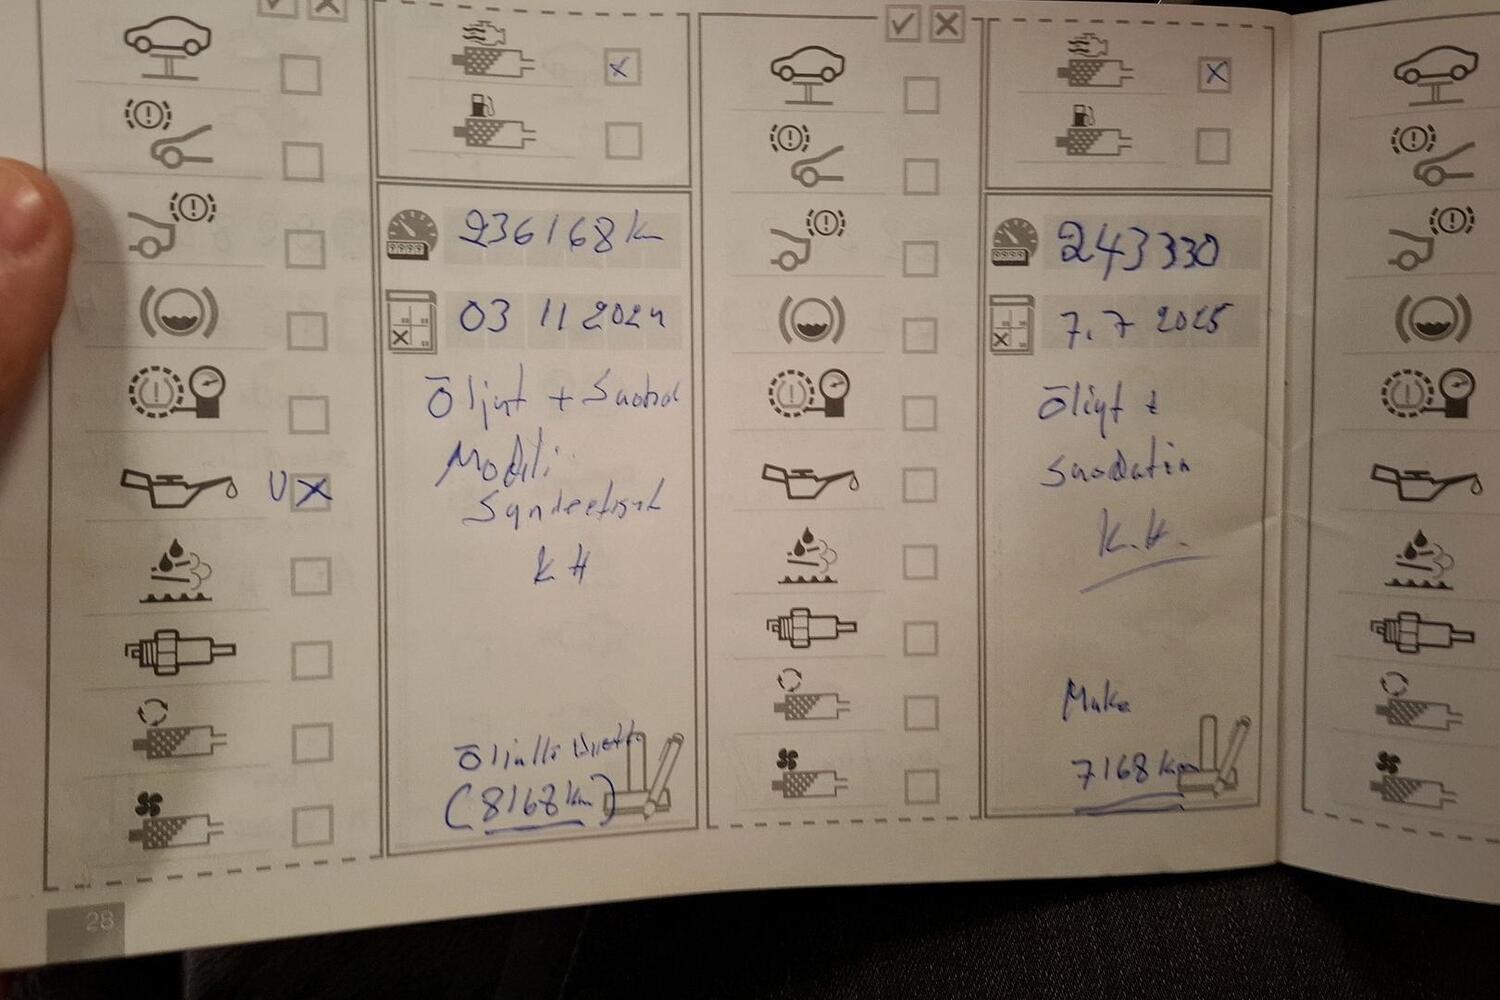 236168 km
03 11 2024
Öljyt + Suodat
Mobili
Synteetiset
K H
Öljyllä
(8168 km)
243330
7.7 2025
Öljyt +
Suodatin
K.H.
Matka
7168 km
28